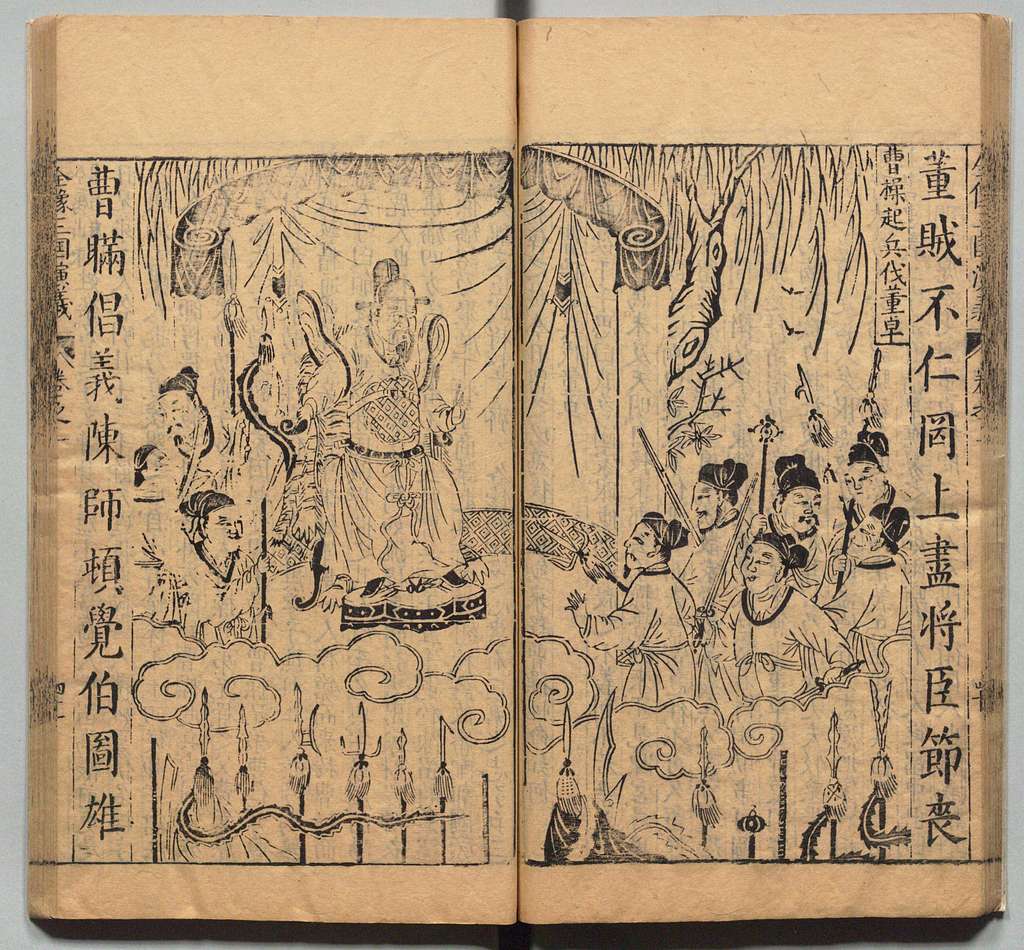 董賊不仁罔上盡將臣節喪
曹操起兵伐董卓
曹瞞倡義陳師頓覺伯圖雄
全像三國演義
卷之一